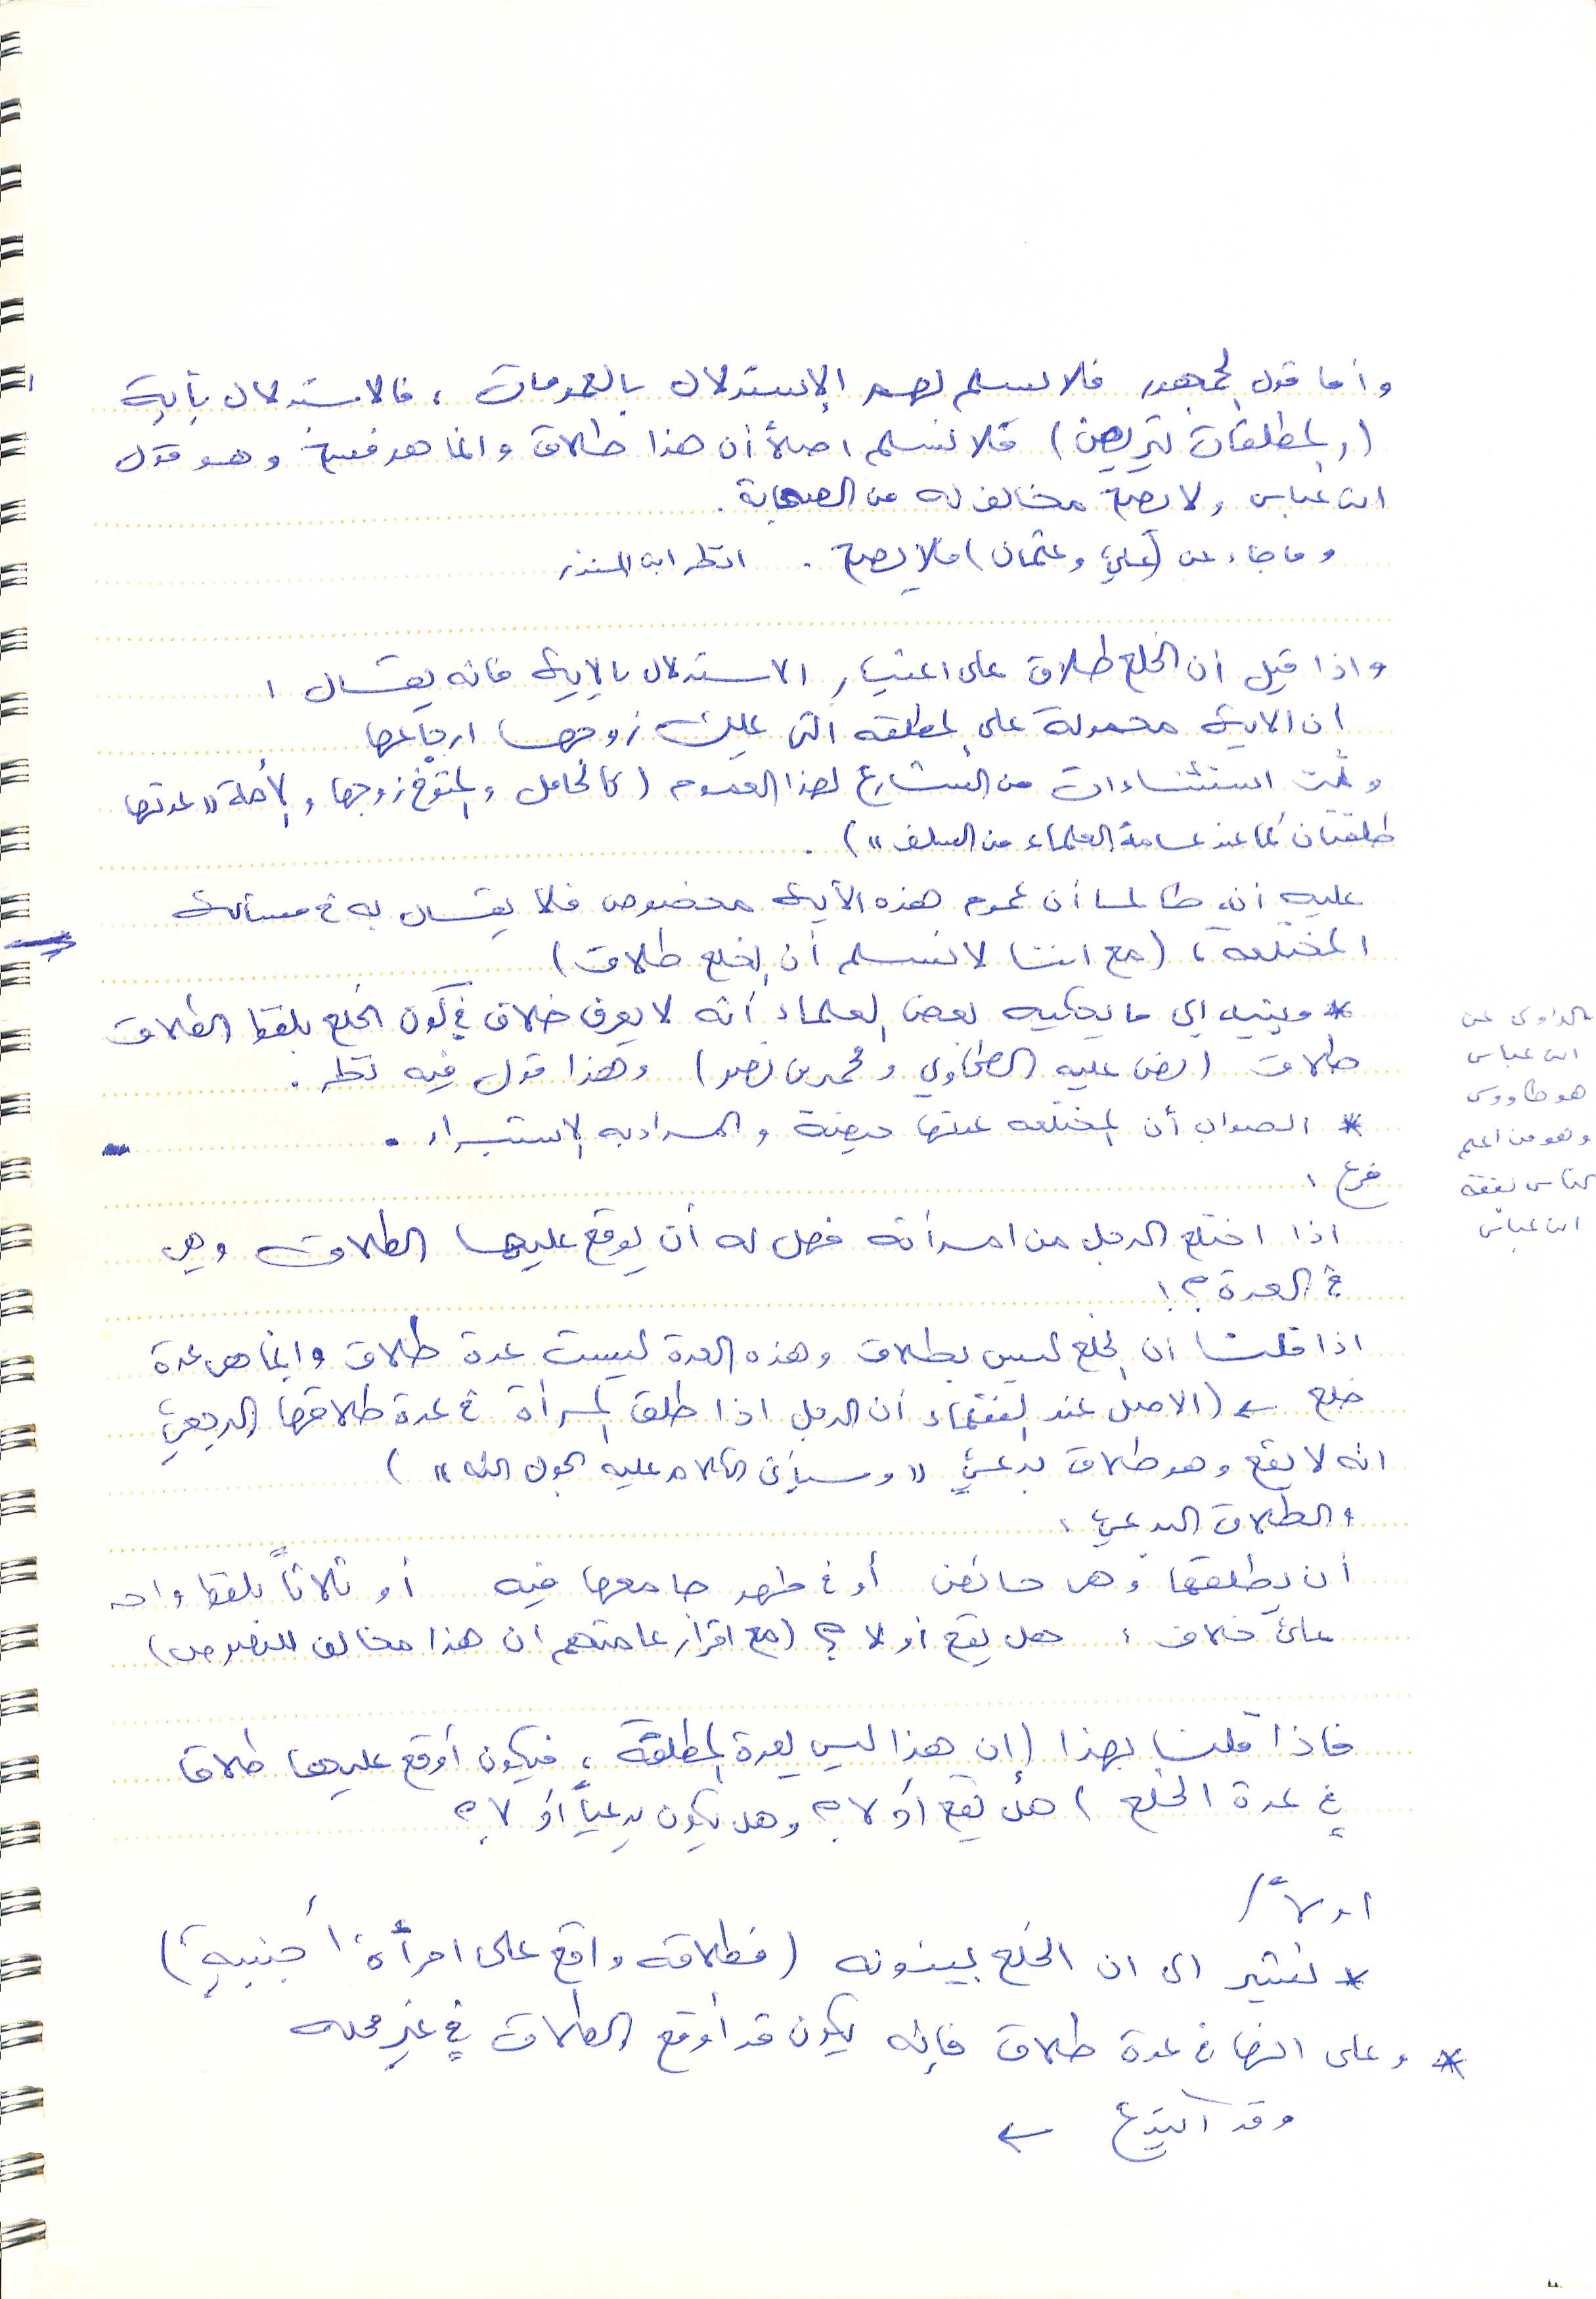 وأما قول الجمهور فلا نسلم لهم الاستدلال بالعمومات ، فالاستدلال بآية
(والمطلقات يتربصن) فلا نسلم اصلاً أن هذا طلاق وانما هو فسخ وهو قول
ابن عباس ولا يصح مخالف له من الصحابة .
وما جاء عن (علي وعثمان) فلا يصح . انظر ابن المنذر
واذا قيل أن الخلع طلاق على اعتبار الاستدلال بالاية فانه يقال :
ان الاية محمولة على المطلقه التي يملك زوجها ارجاعها
وثمت استثناءات من الشارع لهذا العموم (كالحامل والمتوفى زوجها والأمة "عدتها
طلقتان كما عند عامة العلماء من السلف") .
عليه أنه طالما أن عموم هذه الآية مخصوص فلا يقال به في مسألة
المختلعه ، (مع اننا لا نسلم أن الخلع طلاق)
* وينبه الى ما يحكيه بعض العلماء أنه لا يعرف خلاف في كون الخلع بلفظ الطلاق
طلاق (نص عليه الطحاوي ومحمد بن نصر) وهذا قول فيه نظر .
* الصواب أن المختلعه عدتها حيضة والمراد به الاستبراء .
فرع :
اذا اختلع الرجل من امرأته فهل له أن يوقع عليها الطلاق وهي
في العدة ؟!
اذا قلنا ان الخلع ليس بطلاق وهذه العدة ليست عدة طلاق وانما هي عدة
خلع ← (الاصل عند الفقهاء أن الرجل اذا طلق المرأة في عدة طلاقها الرجعي
انه لا يقع وهو طلاق بدعي "وسيأتي الكلام عليه بحول الله")
والطلاق البدعي :
أن يطلقها وهي حائض أو في طهر جامعها فيه أو ثلاثاً بلفظ واحد
على خلاف : هل يقع أو لا ؟ (مع اقرار عامتهم ان هذا مخالف للنصوص)
فاذا قلنا بهذا (إن هذا ليس بعدة المطلقة ، فيكون أوقع عليها طلاقا
في عدة الخلع) هل يقع أو لا ؟ وهل يكون بدعياً أو لا ؟
اولاً /
* نشير الى ان الخلع بينونه (فطلاقه واقع على امرأة أجنبية)
* وعلى انها في عدة طلاق فإنه يكون قد أوقع الطلاق في غير محله
وقد ابتدع ←
الراوي عن
ابن عباس
هو طاووس
وهو من اعلم
الناس بفقه
ابن عباس